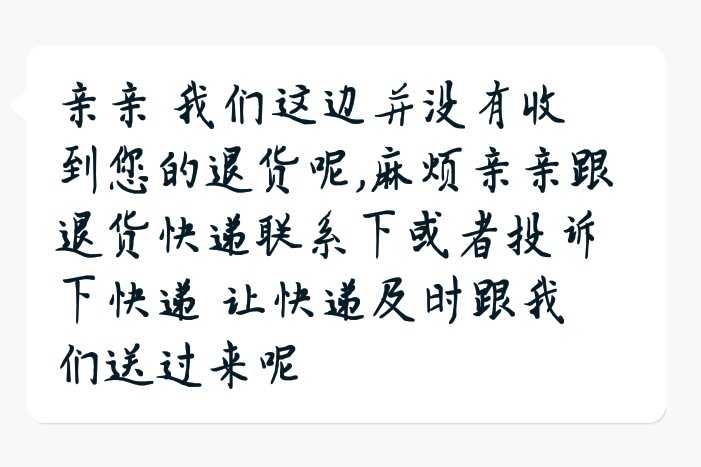 亲亲 我们这边并没有收
到您的退货呢,麻烦亲亲跟
退货快递联系下或者投诉
下快递 让快递及时跟我
们送过来呢